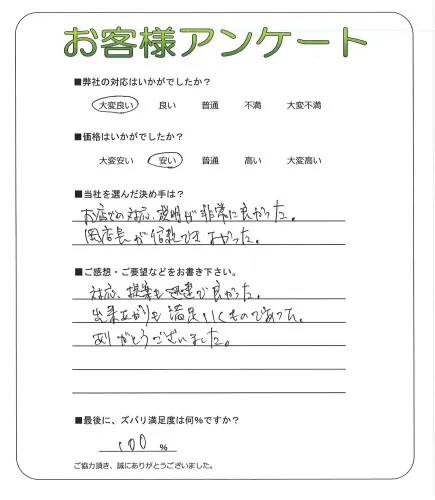 お客様アンケート
■弊社の対応はいかがでしたか?
大変良い 良い 普通 不満 大変不満
■価格はいかがでしたか?
大変安い 安い 普通 高い 大変高い
■当社を選んだ決め手は?
お店での対応、説明が非常に良かった。
岡店長が信頼でき よかった。
■ご感想・ご要望などをお書き下さい。
対応、提案も迅速で良かった。
出来上がりも満足いくものであった。
ありがとうございました。
■最後に、ズバリ満足度は何%ですか?
100 %
ご協力頂き、誠にありがとうございました。